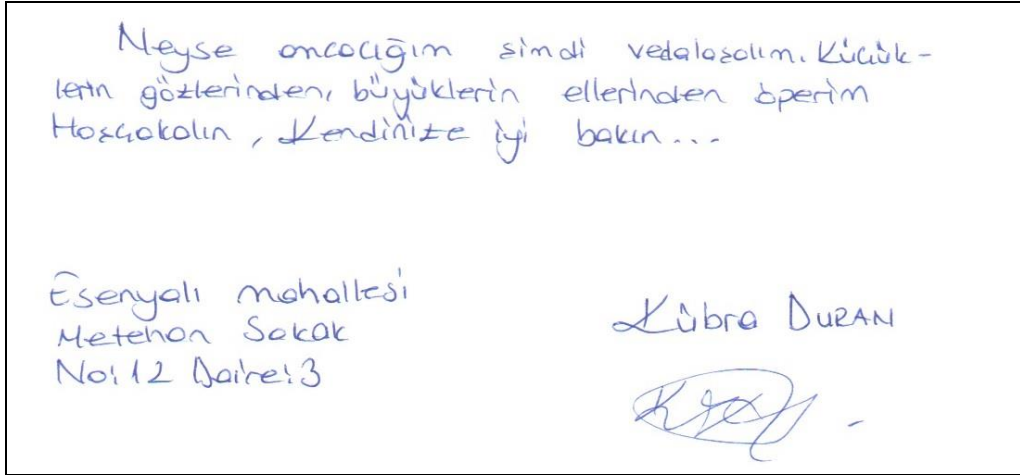 Neyse amcacığım şimdi vedalaşalım. Küçük-
lerin gözlerinden, büyüklerin ellerinden öperim
Hoşçakalın, Kendinize iyi bakın...
Esenyalı mahallesi
Metehan Sokak
No: 12 Daire: 3
Kübra DURAN